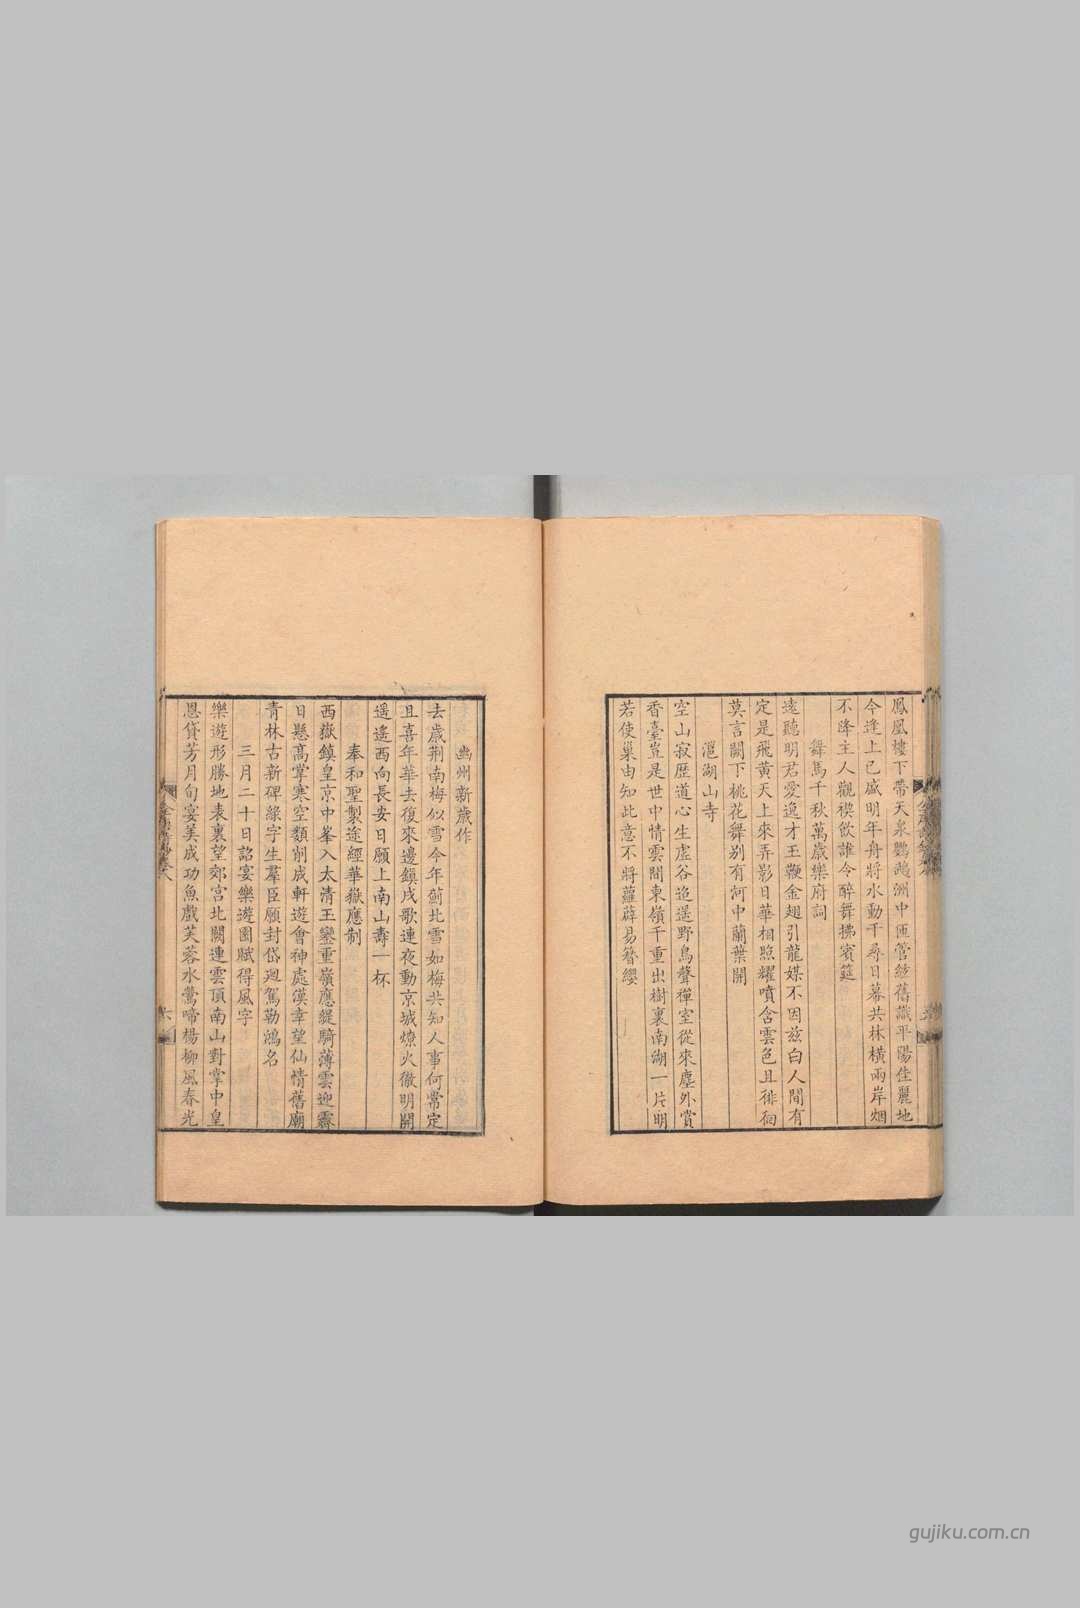 鳳凰樓下帶天泉鸚鵡洲中匝管絃舊識平陽佳麗地
今逢上巳盛明年舟將水動千尋日幕共林橫兩岸烟
不降主人觀禊飲誰令醉舞拂賓筵
舞馬千秋萬歲樂府詞
遠聽明君愛逸才玉鞭金翅引龍媒不因兹白人間有
定是飛黃天上來弄影日華相照耀噴含雲色且徘徊
莫言闕下桃花舞别有河中蘭葉開
㴩湖山寺
空山寂歷道心生虛谷迢遥野鳥聲禪室從來塵外賞
香臺豈是世中情雲間東嶺千重出樹裏南湖一片明
若使巢由知此意不將蘿薜易簪纓
幽州新歲作
去歲荆南梅似雪今年薊北雪如梅共知人事何常定
且喜年華去復來邊鎮戍歌連夜動京城燎火徹明開
遥遥西向長安日願上南山壽一杯
奉和聖製途經華嶽應制
西嶽鎮皇京中峯入太清玉鑾重嶺應緹騎薄雲迎霽
日懸高掌寒空類削成軒遊會神處漢幸望仙情舊廟
青林古新碑綠字生羣臣願封岱迴駕勒鴻名
三月二十日詔宴樂遊園賦得風字
樂遊形勝地表裏望郊宮北闕連雲頂南山對掌中皇
恩貸芳月旬宴美成功魚戲芙蓉水鶯啼楊柳風春光
六
gujiku.com.cn